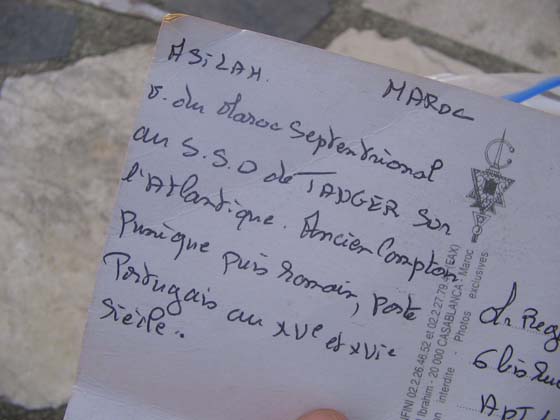 ASILAH.
MAROC
V. du Maroc Septentrional
au S.S.O de TANGER sur
l'Atlantique. Ancien Comptoir
Punique puis romain, poste
Portugais au XVe et XVIe
Siècle..
FINI 02.2.26.46.52 et 02.2.27.79 (EAX)
Ibrahim - 20 000 CASABLANCA - Maroc
on interdite - Photos exclusives
6 bis
APT